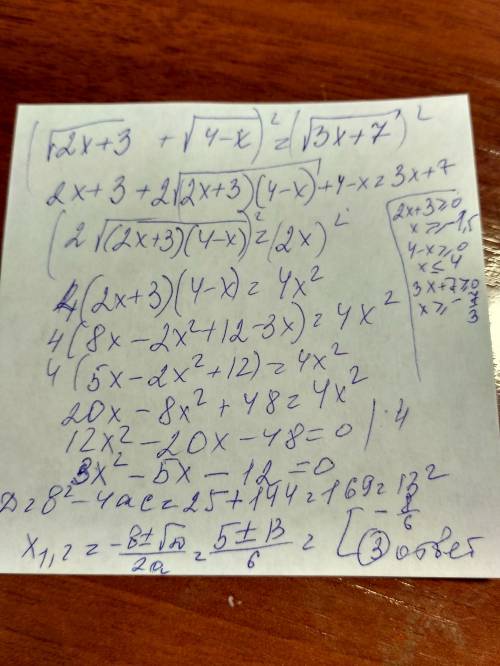 (√2x+3 + √4-x)² = (√3x+7)²
2x+3+2√(2x+3)(4-x)+4-x=3x+7
(2√(2x+3)(4-x))²=(2x)²
4(2x+3)(4-x)=4x²
4(8x-2x²+12-3x)=4x²
4(5x-2x²+12)=4x²
20x-8x²+48=4x²
12x²-20x-48=0 |:4
3x²-5x-12=0
D=в²-4ac=25+144=169=13²
x₁,₂=(-в±√D)/2a=(5±13)/6=[-8/6
③ ответ
2x+3≥0
x≥-1,5
4-x≥0
x≤4
3x+7≥0
x≥-7/3